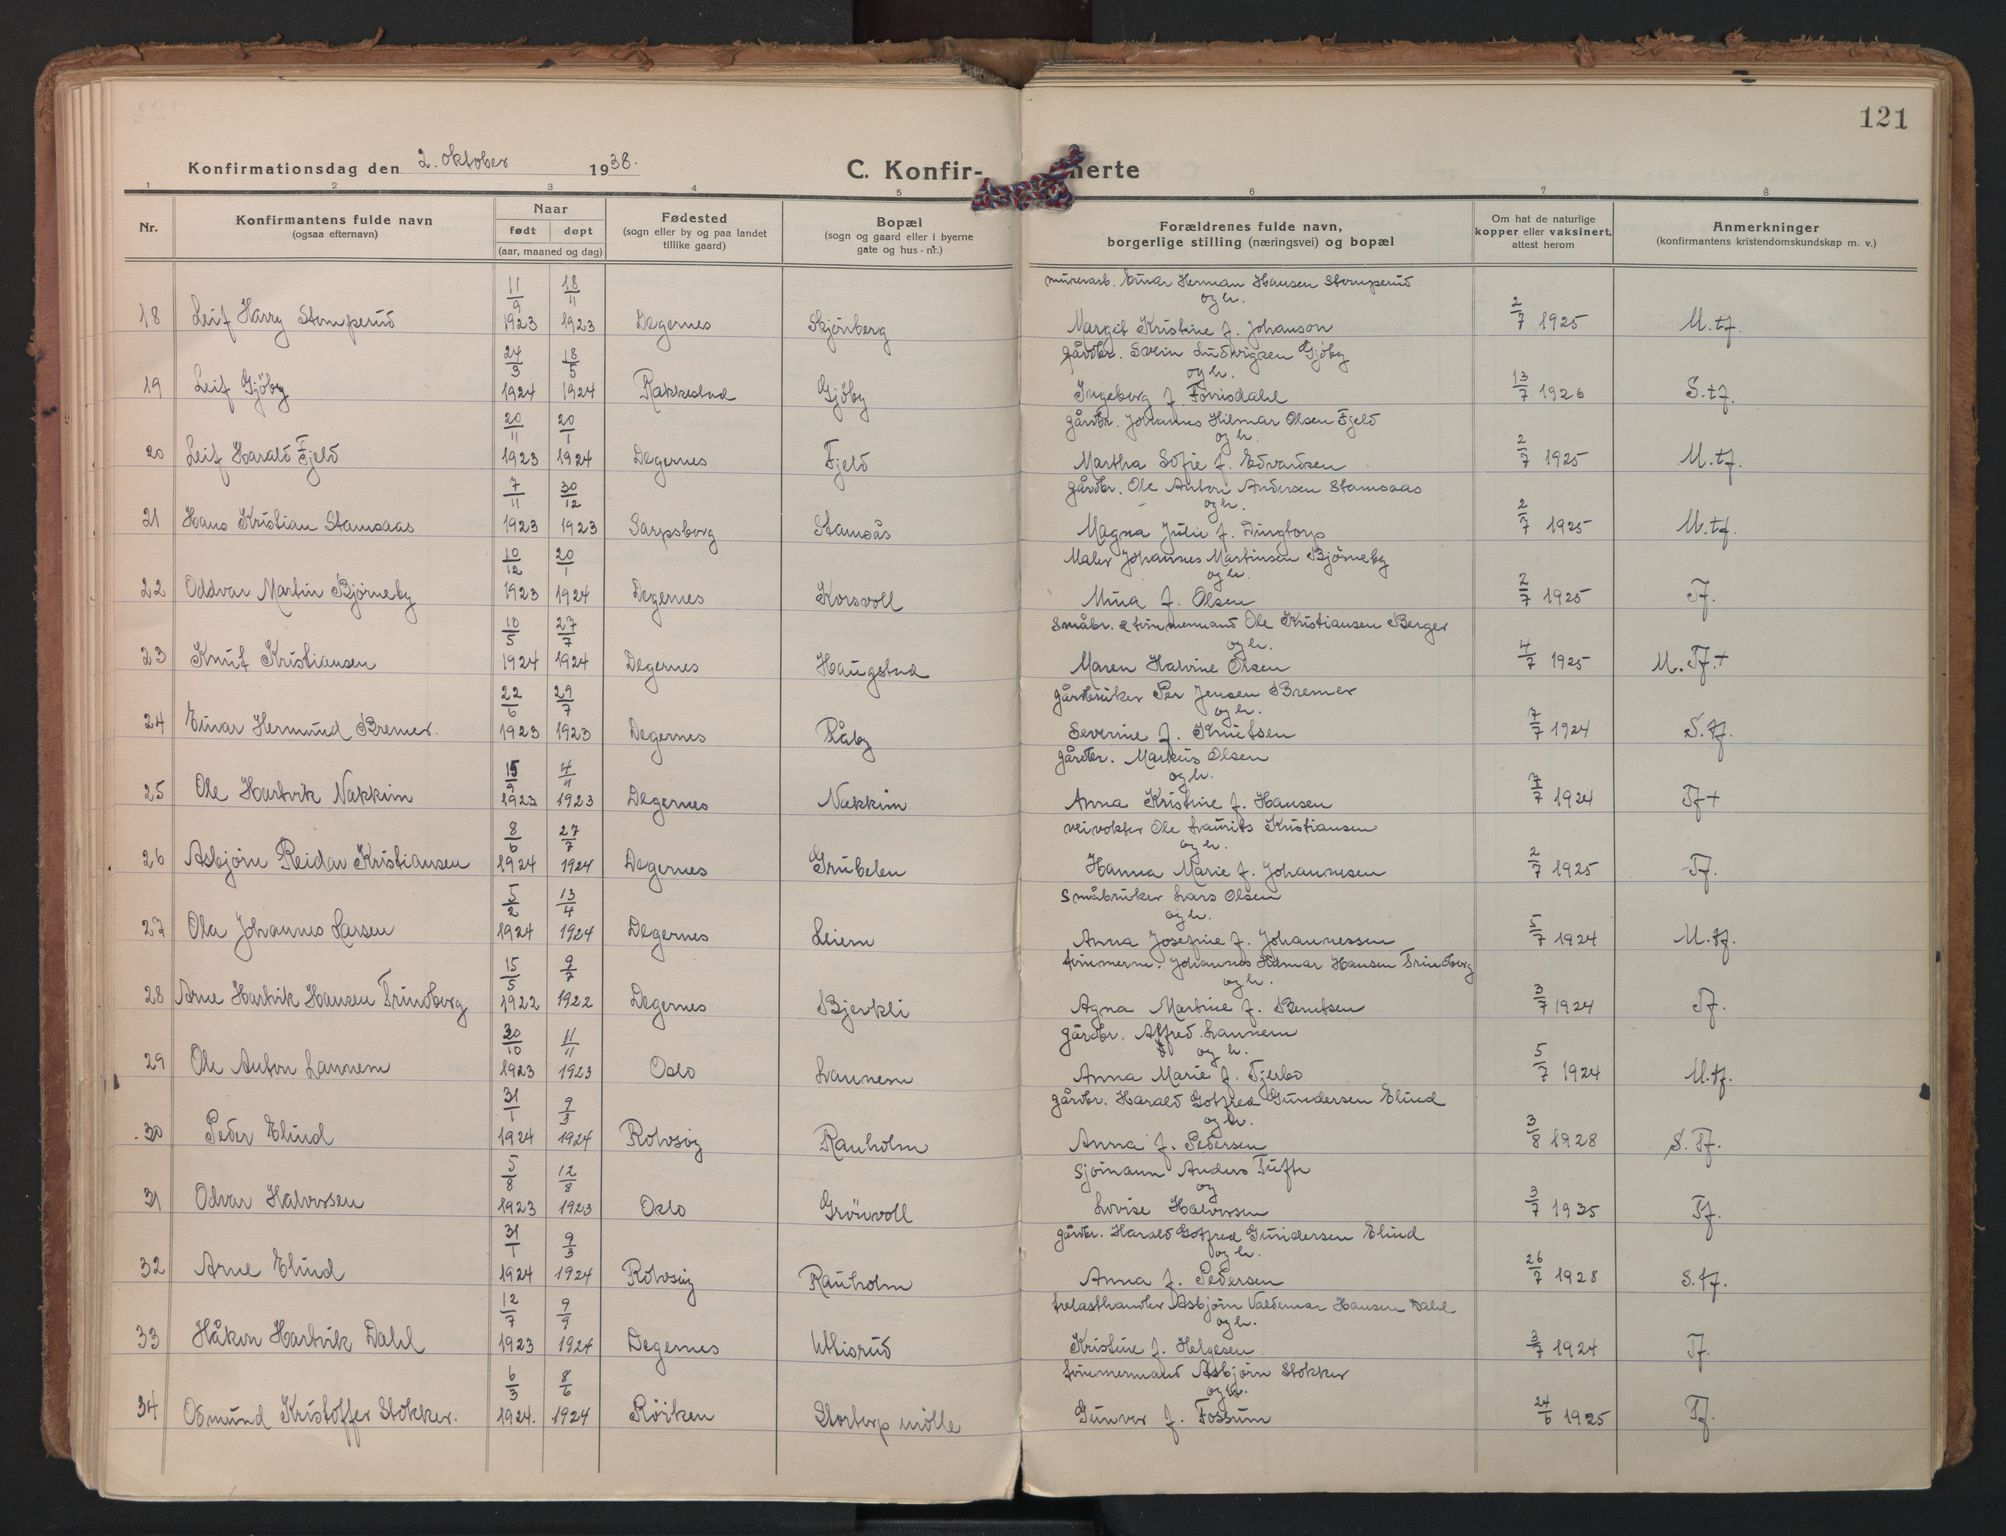 121
Konfirmationsdag den 2. oktober 1938.
C. Konfir- merte
1 2 3 4 5 6 7 8
Nr.
Konfirmantens fulde navn
(ogsaa efternavn)
Naar
født døpt
(aar, maaned og dag)
Fødested
(sogn eller by og paa landet
tillike gaard)
Bopæl
(sogn og gaard eller i byerne
gate og hus-nr.)
Forældrenes fulde navn,
borgerlige stilling (næringsvei) og bopæl
Om hat de naturlige
kopper eller vaksinert,
attest herom
Anmerkninger
(konfirmantens kristendomskundskap m. v.)
11/9 18/11 murerarb. Einar Herman Hansen Stomperud
og h.
18 Leif Harry Stomperud 1923 1923 Degernes Skjønberg Margit Kristine f. Johanson 2/7 1925 M.tf.
24/3 18/5 gårdbr. Svein Ludvigsen Gjøby
og h.
19 Leif Gjøby 1924 1924 Rakkestad Gjøby Ingeborg f. Fonisdahl 13/7 1926 S.tf.
20/11 20/1 gårdbr. Johannes Hilmar Olsen Fjeld
og h.
20 Leif Harald Fjeld 1923 1924 Degernes Fjeld Martha Sofie f. Edvardsen 2/7 1925 M.tf.
7/11 30/12 gårdbr. Ole Anton Andersen Stamsaas
og h.
21 Hans Kristian Stamsaas 1923 1923 Sarpsborg Stamsås Magna Julie f. Dingtorp 2/7 1925 M.tf.
10/12 20/1 Maler Johannes Martinsen Bjørneby
og h.
22 Oddvar Martin Bjørneby 1923 1924 Degernes Korsvoll Mina f. Olsen 2/7 1925 Tf.
10/5 27/7 Småbr. & tømmermand Ole Kristiansen Berger
og h.
23 Knut Kristiansen 1924 1924 Degernes Haugstad Maren Halvine Olsen 4/7 1925 M.Tf.+
22/6 29/7 gårdbruker Per Jensen Bremer
og h.
24 Einar Hermund Bremer. 1923 1923 Degernes Råby Severine f. Knutsen 7/7 1924 S.tf.
15/9 4/11 gårdbr. Markus Olsen
og h.
25 Ole Hartvik Nakkim 1923 1923 Degernes Nakkim Anna Kristine f. Hansen 7/7 1924 Tf+
8/6 27/7 veivokter Ole Laurits Kristiansen
og h.
26 Asbjørn Reidar Kristiansen 1924 1924 Degernes Grubelen Hanna Marie f. Johannesen 2/7 1925 Tf.
5/2 13/4 Småbruker Lars Olsen
og h.
27 Ola Johannes Larsen 1924 1924 Degernes Leiern Anna Josefine f. Johannessen 5/7 1924 M.tf.
15/5 9/7 tømmerm. Johannes Hilmar Hansen Trindberg
og h.
28 Arne Hartvik Hansen Trindberg 1922 1922 Degernes Bjerkli Agna Martine f. Berntsen 3/7 1924 Tf.
30/10 11/11 gårdbr. Alfred Lannem
og h.
29 Ole Anton Lannem 1923 1923 Oslo Lannem Anna Marie f. Tjerbo 5/7 1924 M.tf.
31/1 9/3 gårdbr. Harald Gotfred Gundersen Elind
og h.
30 Peder Elind 1924 1924 Rolvsøy Rauholm Anna f. Pedersen 3/8 1928 S.Tf.
5/8 12/8 Sjømann Anders Tufte
og
31 Odvar Halvorsen 1923 1923 Oslo Grönvoll Lovise Halvorsen 3/7 1935 Tf.
31/1 9/3 gårdbr. Harald Gotfred Gundersen Elind
og h.
32 Arne Elind 1924 1924 Rolvsøy Rauholm Anna f. Pedersen 26/7 1928 S.tf.
12/7 9/9 trelasthandler Asbjørn Valdemar Hansen Dahl
og h.
33 Håkon Hartvik Dahl 1923 1924 Degernes Ultisrud Kristine f. Helgesen 3/7 1924 Tf.
6/3 8/6 tømmermand Asbjørn Stokker
og h.
34 Osmund Kristoffer Stokker. 1924. 1924 Røiken Storterp mølle Gunvor f. Fossum 24/6 1925 Tf.